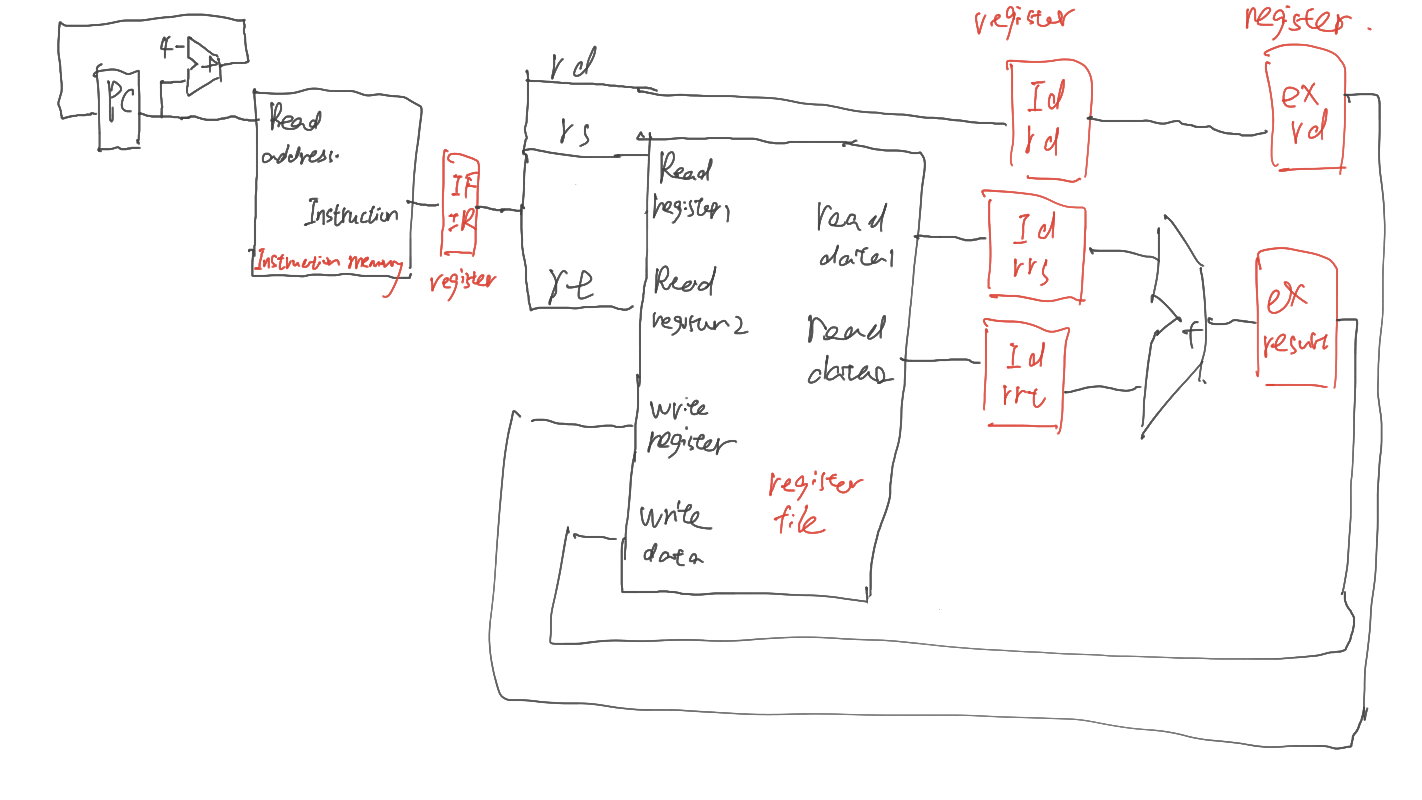 register
register.
4
+
PC
Read
address.
Instruction
Instruction memory
IF
IR
register
rd
rs
rt
Read
register1
Read
register2
write
register
write
data
read
data1
read
data2
register
file
Id
rd
Id
rrs
Id
rrt
+
ex
rd
ex
result